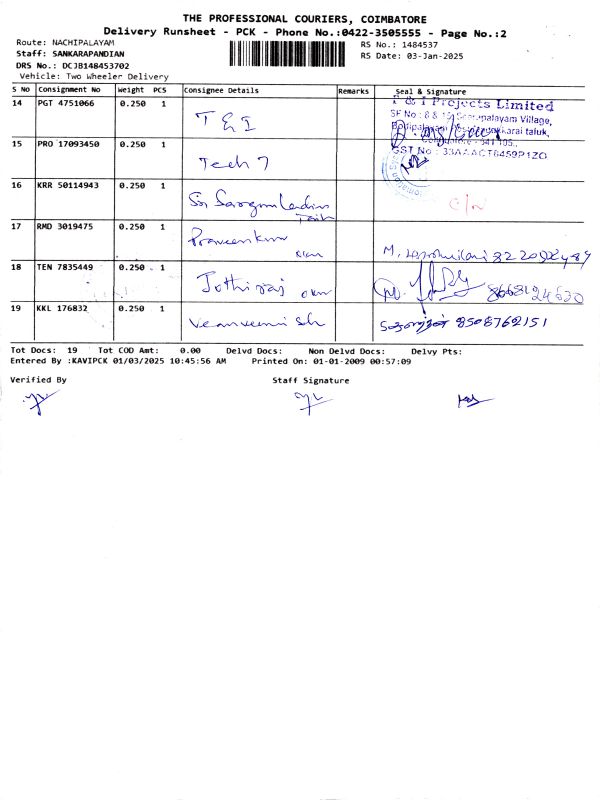 THE PROFESSIONAL COURIERS, COIMBATORE
Delivery Runsheet - PCK - Phone No.:0422-3505555 - Page No.:2
Route: NACHIPALAYAM
RS No.: 1484537
Staff: SANKARAPANDIAN
RS Date: 03-Jan-2025
DRS No.: DCJB148453702
Vehicle: Two Wheeler Delivery
S No Consignment No Weight PCS Consignee Details Remarks Seal & Signature
14 PGT 4751066 0.250 1 T & I
I Projects Limited
SF No : 8 & palayam Village,
taluk,
GST No : 33AAACT8459P1ZO
15 PRO 17093450 0.250 1 Tech 7
16 KRR 50114943 0.250 1 Sri
17 RMD 3019475 0.250 1 Praveenkumar
18 TEN 7835449 0.250 1 Jothiraj 8668124630
19 KKL 176832 0.250 1 8508762151
Tot Docs: 19 Tot COD Amt: 0.00 Delvd Docs: Non Delvd Docs: Delvy Pts:
Entered By :KAVIPCK 01/03/2025 10:45:56 AM Printed On: 01-01-2009 00:57:09
Verified By Staff Signature